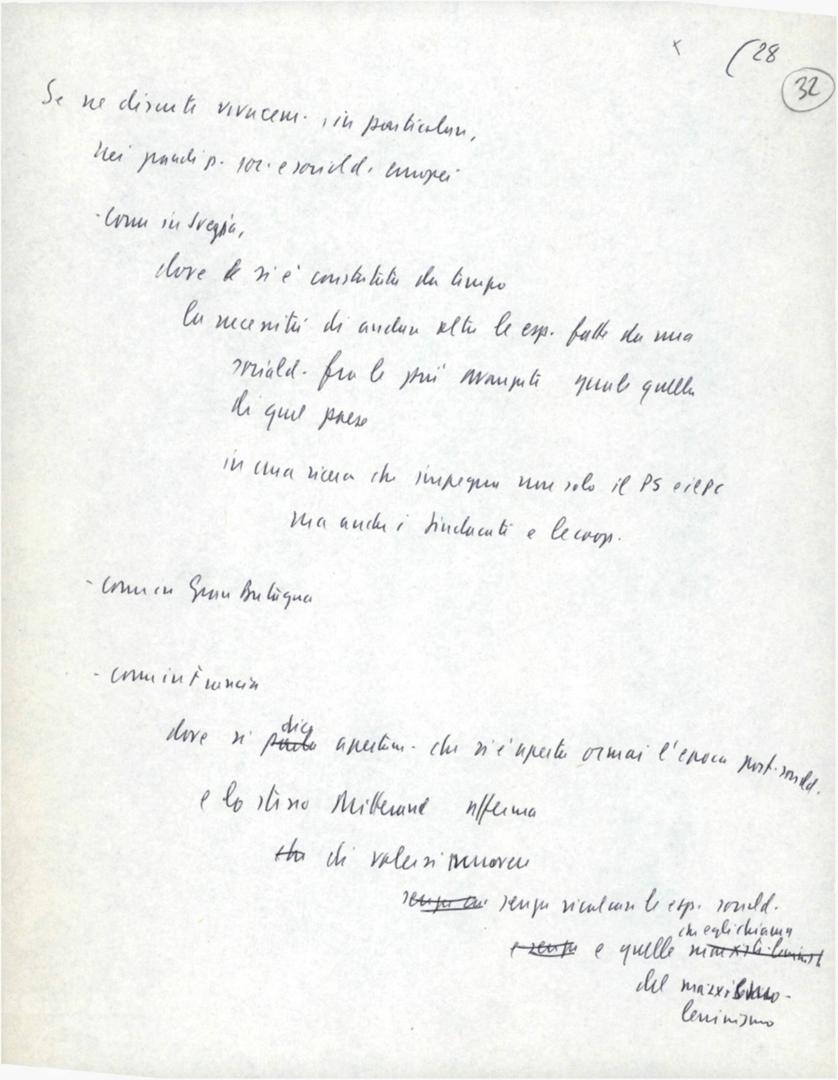 x (28
32
Se ne discute vivacem., in particolare,
nei grandi p. soc. e sociald. europei
- Come in Svezia,
dove si è constatata da tempo
la necessità di andare oltre le esp. fatte da una
sociald. fra le più avanzate quale quella
di quel paese
in una ricerca che impegna non solo il PS e il PC
ma anche i sindacati e le coop.
- come in Gran Bretagna
- come in Francia
dove si parla dice apertam. che si è aperta ormai l'epoca post-sociald.
e lo stesso Mitterand afferma
che di volersi muovere
senza senza ricalcare le esp. sociald.
e senza e quelle che egli chiama marxisti-leninisti
del marxismo-
leninismo